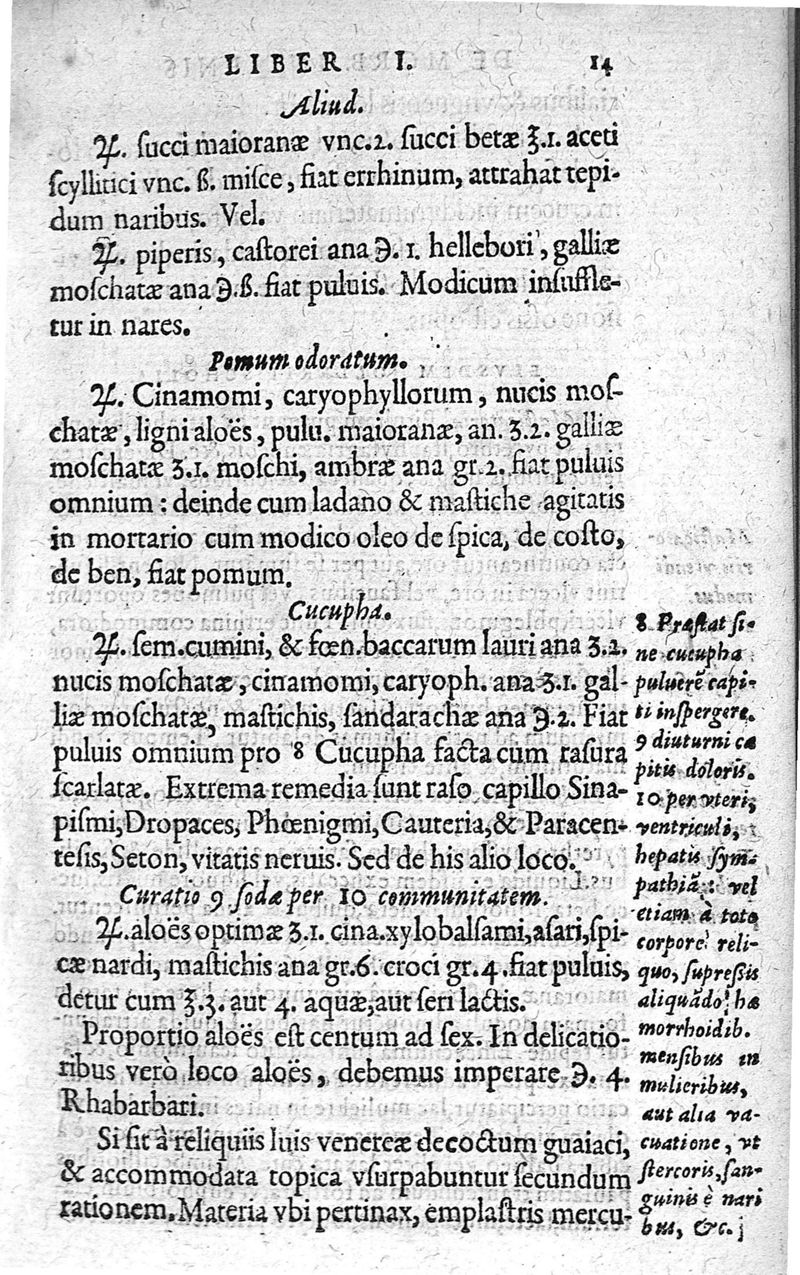 LIBER I. 14
Aliud.
℞. ſucci maioranæ vnc.2. ſucci betæ ʒ.1. aceti
ſcyllitici vnc. ß. miſce, fiat errhinum, attrahat tepi-
dum naribus. Vel.
℞. piperis, caſtorei ana ℈. 1. hellebori, galliæ
moſchatæ ana ℈.ß. fiat puluis. Modicum inſuffle-
tur in nares.
Pomum odoratum.
℞. Cinamomi, caryophyllorum, nucis moſ-
chatæ, ligni aloës, pulu. maioranæ, an. ʒ.2. galliæ
moſchatæ ʒ.1. moſchi, ambræ ana gr.2. fiat puluis
omnium: deinde cum ladano & maſtiche agitatis
in mortario cum modico oleo de ſpica, de coſto,
de ben, fiat pomum.
Cucupha.
℞. ſem.cumini, & fœn.baccarum lauri ana ʒ.2.
nucis moſchatæ, cinamomi, caryoph. ana ʒ.1. gal-
liæ moſchatæ, maſtichis, ſandarachæ ana ℈.2. Fiat
puluis omnium pro 8 Cucupha facta cum raſura
ſcarlatæ. Extrema remedia ſunt raſo capillo Sina-
piſmi, Dropaces, Phœnigmi, Cauteria, & Paracen-
teſis, Seton, vitatis neruis. Sed de his alio loco.
Curatio 9 ſodæ per 10 communitatem.
℞. aloës optimæ ʒ.1. cina.xylobalſami, aſari, ſpi-
cæ nardi, maſtichis ana gr.6. croci gr.4. fiat puluis,
detur cum ℥.3. aut 4. aquæ, aut ſeri lactis.
Proportio aloës eſt centum ad ſex. In delicatio-
ribus verò loco aloës, debemus imperare ℈. 4.
Rhabarbari.
Si ſit à reliquiis luis venereæ decoctum guaiaci,
& accommodata topica vſurpabuntur ſecundum
rationem. Materia vbi pertinax, emplaſtris mercu-
8 Præſtat ſi-
ne cucupha
puluerē capi-
ti inſpergere.
9 diuturni ca
pitis doloris.
10 per vteri,
ventriculi,
hepatis ſym-
pathiā: vel
etiam à toto
corpore reli-
quo, ſupreſſis
aliquādo hæ
morrhoidib.
menſibus in
mulieribus,
aut alia va-
cuatione, vt
ſtercoris, ſan-
guinis è nari
bus, &c.